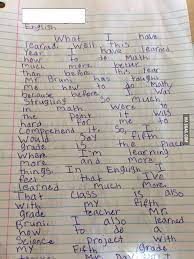 English
What I have
learned Well this
year I have learned
how to do Math
much more beter
than before this year
Mr. Bruni has taught
me how to do math
because before I was
Strugling so much
in math were to
the Point it was
hard for me to
Comprehend it, so, I
would say fifth
grade is the Place
Where I'm learning
more and more
things. In English I
feel that I've
learned much more
That class is also
with my fifth
grade teacher Mr.
Bruni. I also learned
how to do a
Science Project with
my Fifth Grade